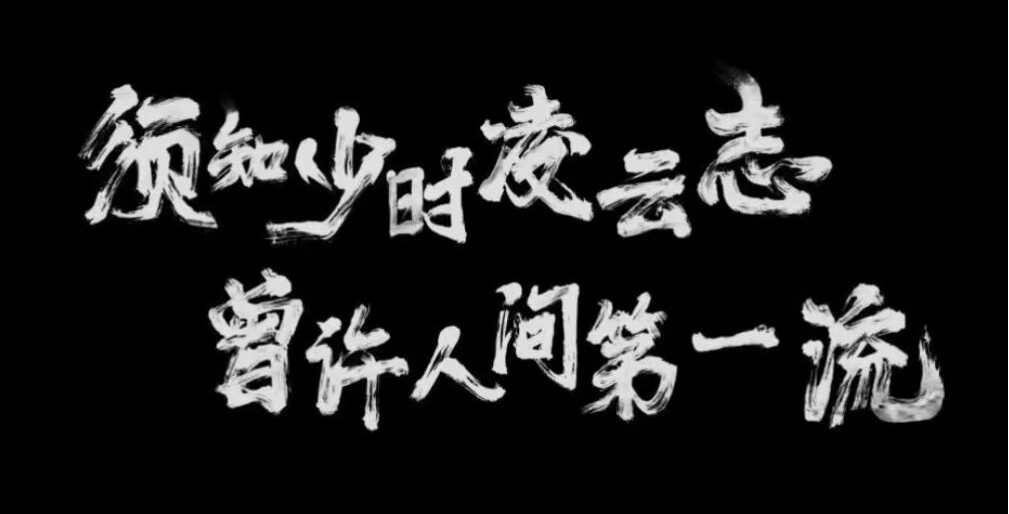 须知少时凌云志
曾许人间第一流